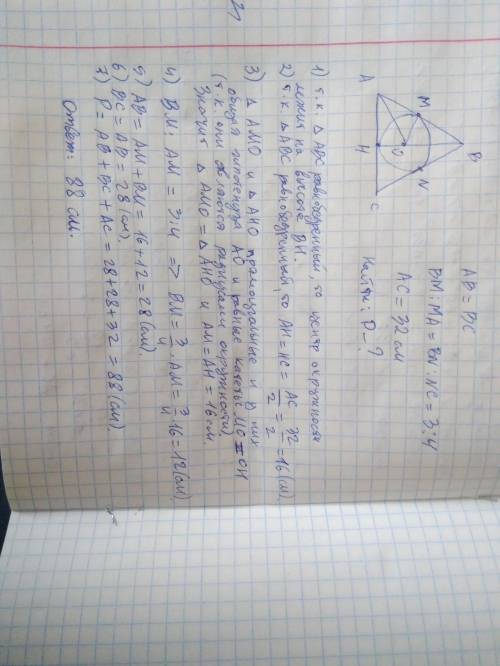 AB = BC
BM : MA = BN : NC = 3:4
AC = 32 см
Найти: P - ?
B
M
N
O
A
H
C
1) т.к. △ ABC равнобедренный, то центр окружности
лежит на высоте BH.
2) т.к. △ ABC равнобедренный, то AH = HC = AC/2 = 32/2 = 16 (см)
3) △ AMO и △ AHO прямоугольные и в них
общая гипотенуза AO и равные катеты MO = OH
(т.к. они являются радиусами окружности).
Значит △ AMO = △ AHO и AM = AH = 16 см
4) BM : AM = 3:4 => BM = 3/4 · AM = 3/4 · 16 = 12 (см)
5) AB = AM + BM = 16 + 12 = 28 (см).
6) BC = AB = 28 (см).
7) P = AB + BC + AC = 28 + 28 + 32 = 88 (см).
Ответ: 88 см.